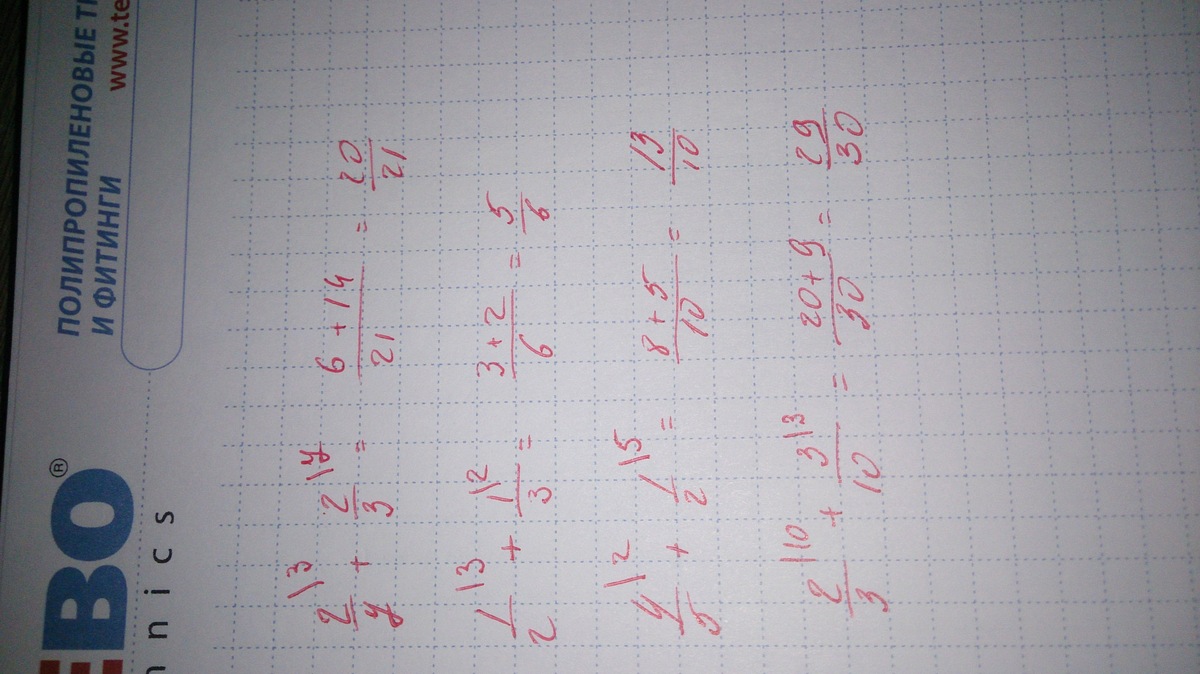 ПОЛИПРОПИЛЕНОВЫЕ
И ФИТИНГИ
www.te
BO®
nnics
2/7 \3 + 2/3 \7 = 6 + 14/21 = 20/21
1/2 \3 + 1/3 \2 = 3 + 2/6 = 5/6
4/5 \2 + 1/2 \5 = 8 + 5/10 = 13/10
2/3 \10 + 3/10 \3 = 20 + 9/30 = 29/30